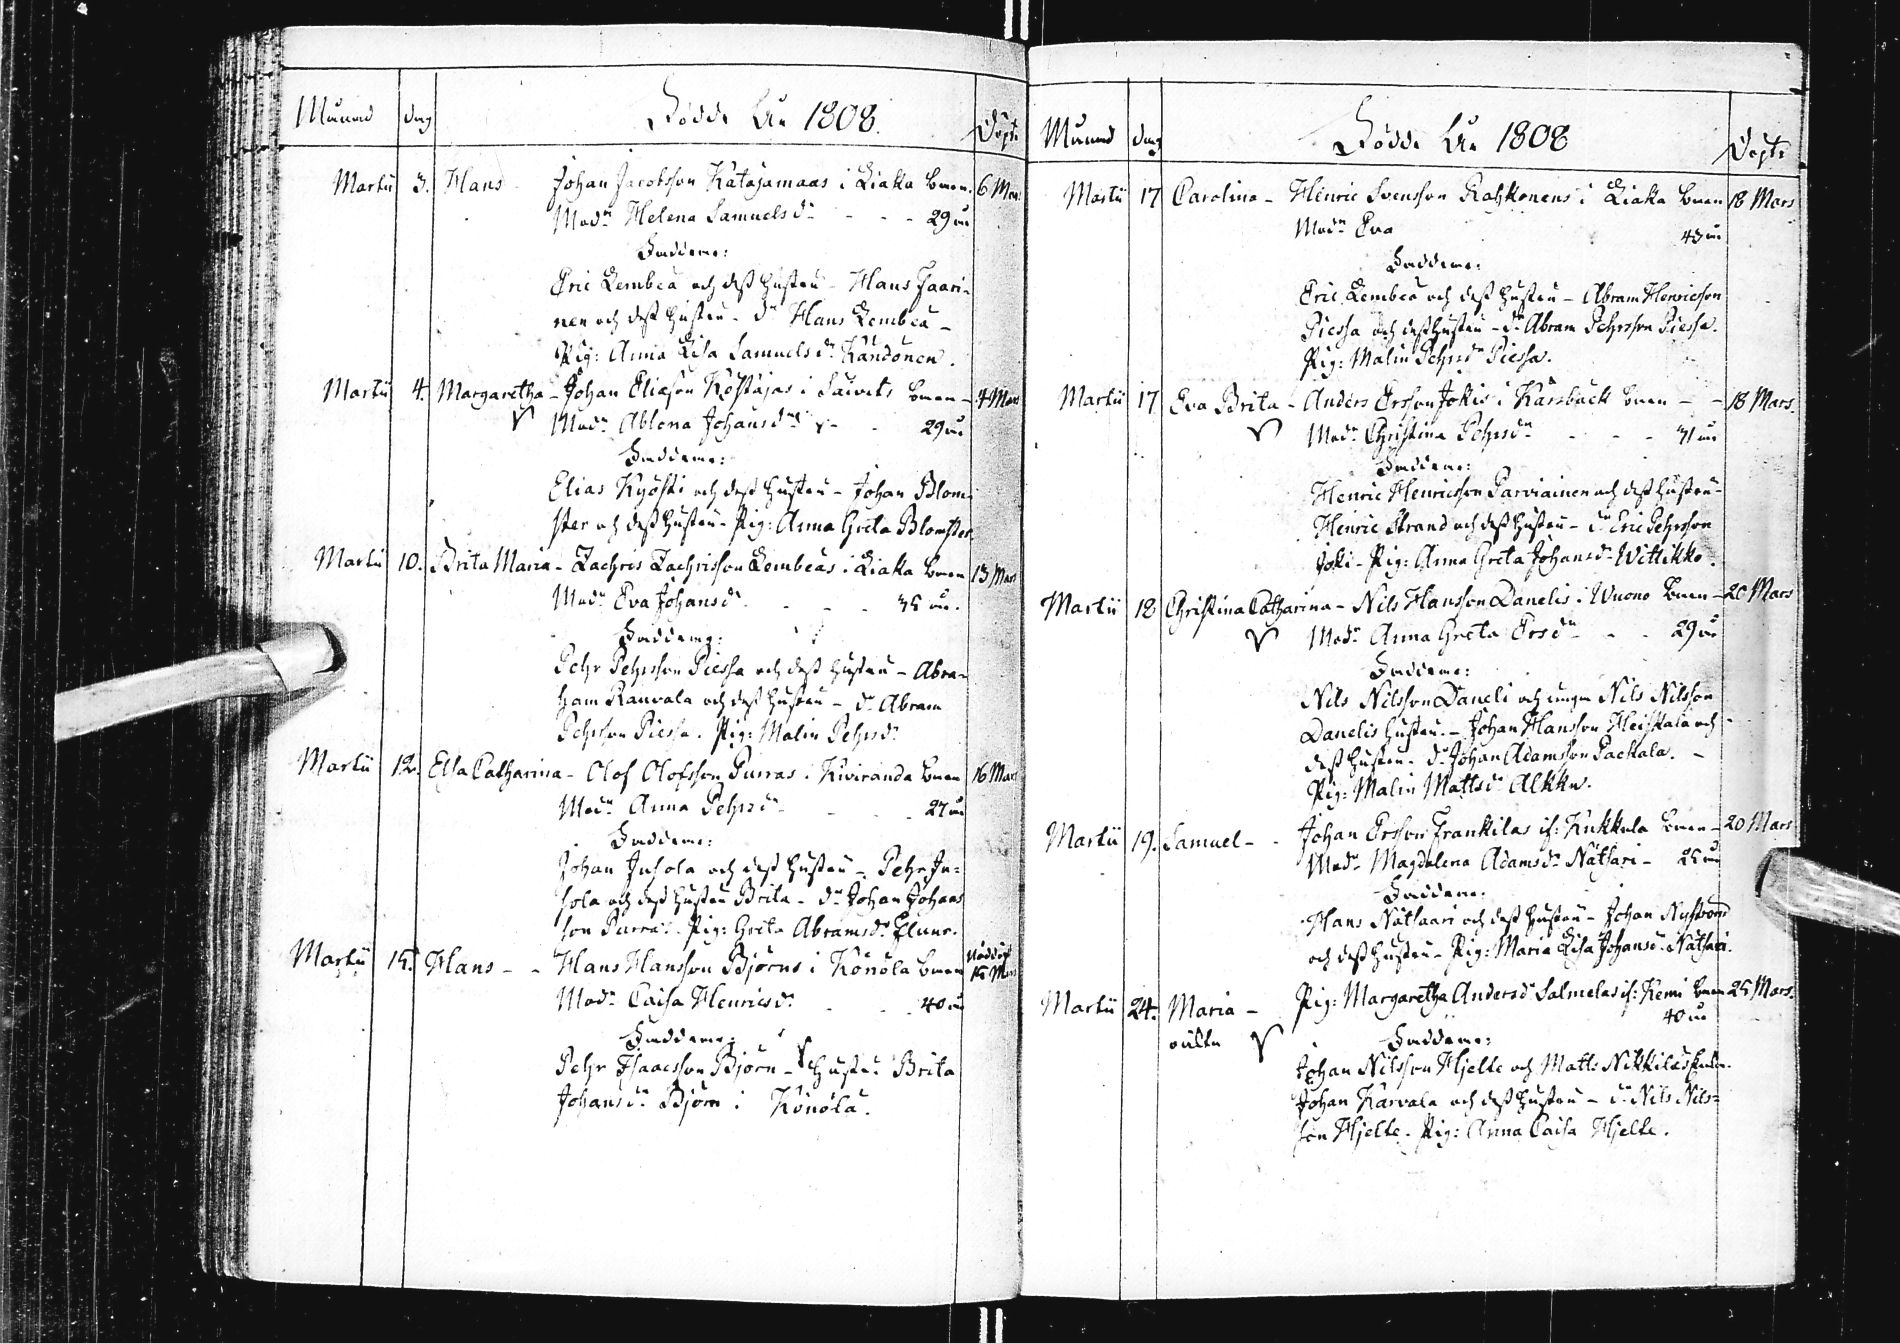 Månad dag Födde År 1808. Döpte
Martii 3. Hans Johan Jacobsson Katajamaas i Liaka barn. 6 Mars
Modr Helena Samuelsdr - - - 29 år
Faddrar:
Eric Lembea och dess hustru - Hans Jaari-
nen och dess hustru - dr Hans Lembea -
Pig: Anna Lisa Samuelsdr Kandonen.
Martii 4. Margaretha - Johan Eliasson Köstajas i Saivits barn - 4 Mars
Modr Ablona Johansdr - - 29 år
Faddrar:
Elias Kyösti och dess hustru - Johan Blom-
ster och dess hustru - Pig: Anna Greta Blomster
Martii 10. Brita Maria - Zachris Zachrisson Lembeas i Liaka barn 13 Mars
Modr Eva Johansdr - - - 35 år.
Faddrar:
Pehr Pehrsson Piessa och dess hustru - Abra-
ham Rauvala och dess hustru - dr Abram
Pehrsson Piessa. Pig: Malin Pehrsdr
Martii 12. Elsa Catharina - Olof Olofsson Purras i Kiviranda barn 16 Mars
Modr Anna Pehrsdr - - - 27 år
Faddrar:
Johan Juhola och dess hustru - Pehr Ju-
hola och dess hustru Brita - dr Johan Johans
son Purra. Pig: Greta Abramsdr
Martii 15. Hans - - Hans Hansson Björns i Könölä barn Nöddöpt 15 Mars
Modr Caisa Henricsdr - - - 40 år
Faddrar:
Pehr Isaacsson Björn - hustru Brita
Johansdr Björn i Könölä.
Månad dag Födde År 1808 Döpte
Martii 17 Carolina - Henric Svensson Rahkonens i Liaka barn 18 Mars
Modr Eva 43 år
Faddrar:
Eric Lembea och dess hustru - Abram Henricsson
Piessa och dess hustru - dr Abram Pehrsson Piessa.
Pig: Malin Pehrsdr Piessa.
Martii 17 Eva Brita - Anders Ersson Jokis i Karsbäck barn - - 18 Mars.
Modr Christina Pehrsdr - - - 31 år
Faddrar:
Henric Henricsson Parviainen och dess hustru -
Henric Strand och dess hustru - dr Eric Pehrsson
Joki - Pig: Anna Greta Johansdr Wittikko.
Martii 18 Christina Catharina - Nils Hansson Danelis i Wuono barn - 20 Mars
Modr Anna Greta Ersdr - - 29 år
Faddrar:
Nils Nilsson Daneli och unga Nils Nilsson
Danelis hustru. - Johan Hansson Heiskala och
dess hustru. dr Johan Adamsson Packala. -
Pig: Malin Mattsdr Alkku.
Martii 19. Samuel - - Johan Ersson Frankilas if: Kukkula barn - 20 Mars
Modr Magdalena Adamsdr Nätsari - 25 år
Faddrar:
Hans Nätsaari och dess hustru - Johan Nyström
och dess hustru - Pig: Maria Lisa Johansdr Nätsari.
Martii 24. Maria - Pig: Margaretha Andersdr Salmelas if: Kemi barn 25 Mars.
oäkta 40 år
Faddrar:
Johan Nilsson Hjelte och Matts Nikkilas hustru.
Johan Karvala och dess hustru - dr Nils Nils-
son Hjelte. Pig: Anna Caisa Hjelte.